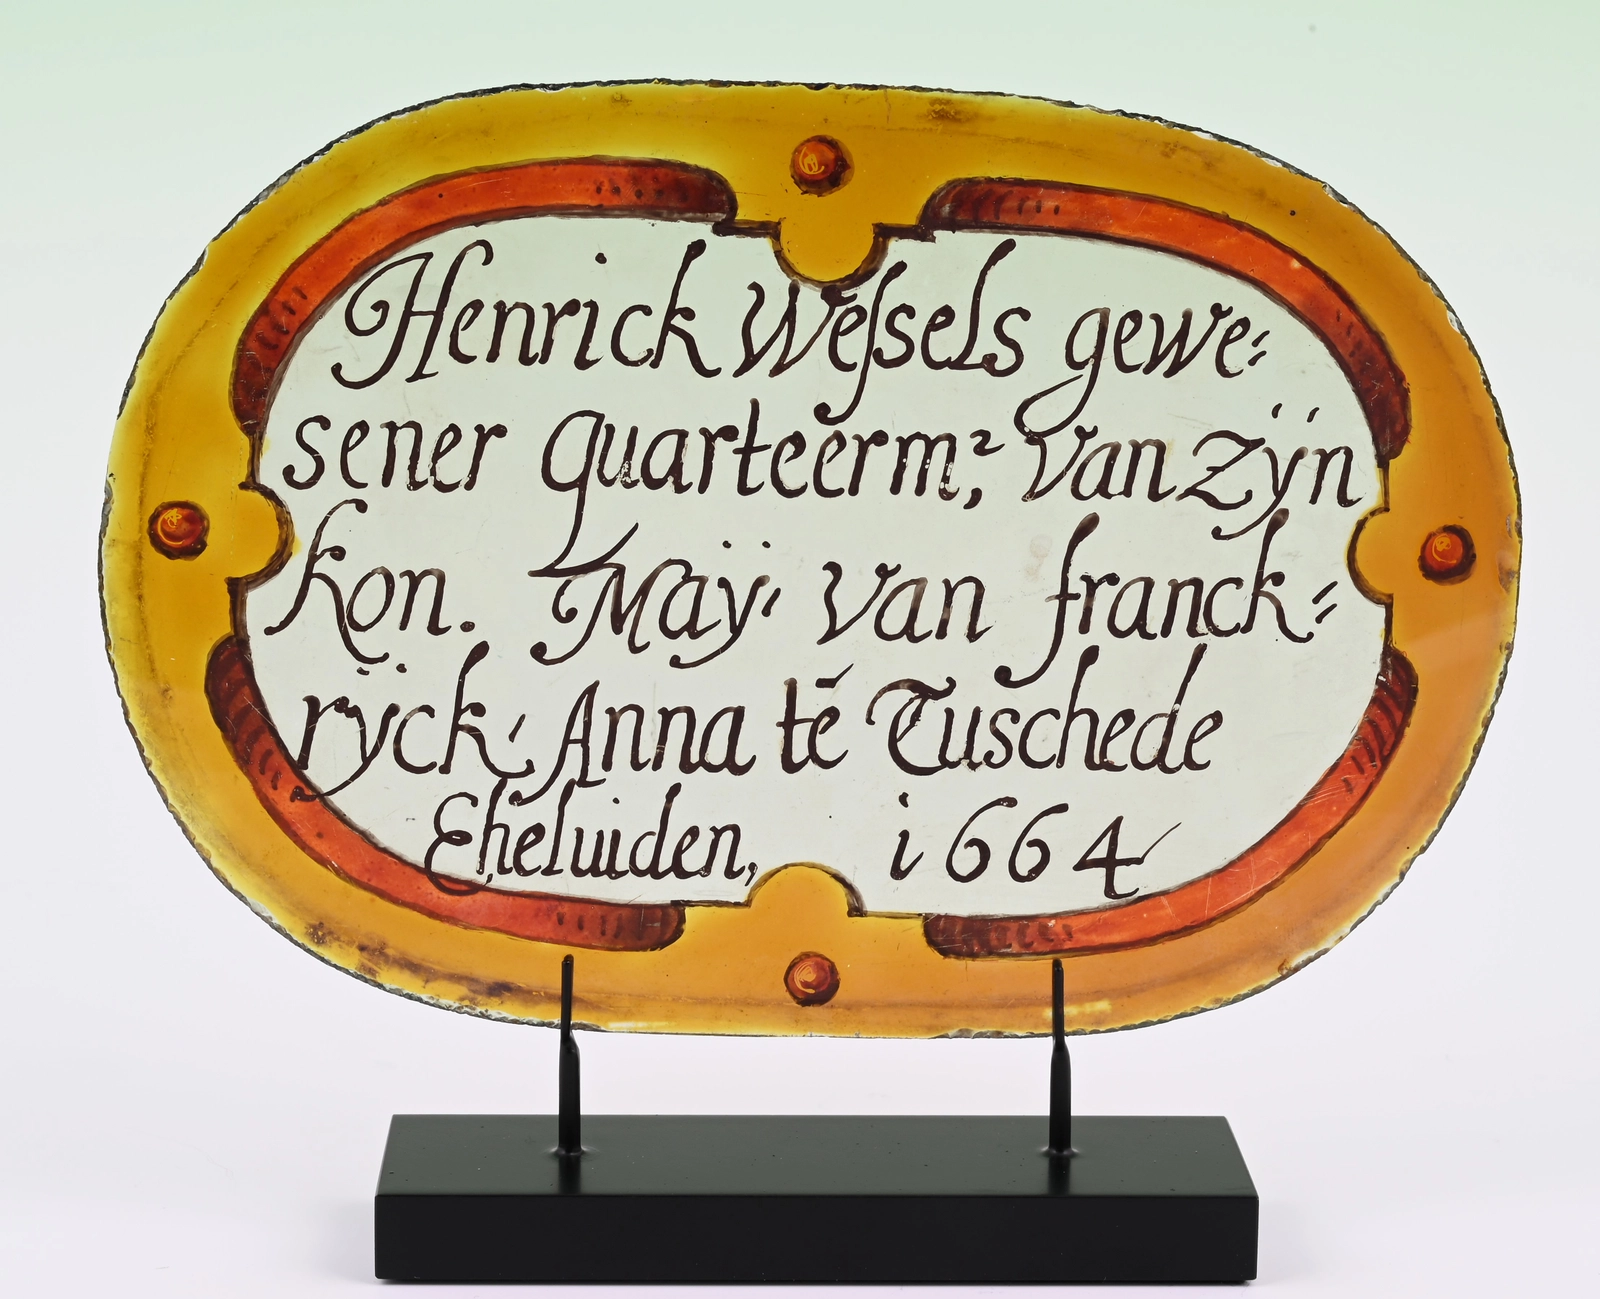 Henrick Weſsels gewe⸗
sener quarteerm², van zÿn
kon. Maÿ: van franck⸗
rÿck: Anna tē Tuschede
Eheluiden, i664